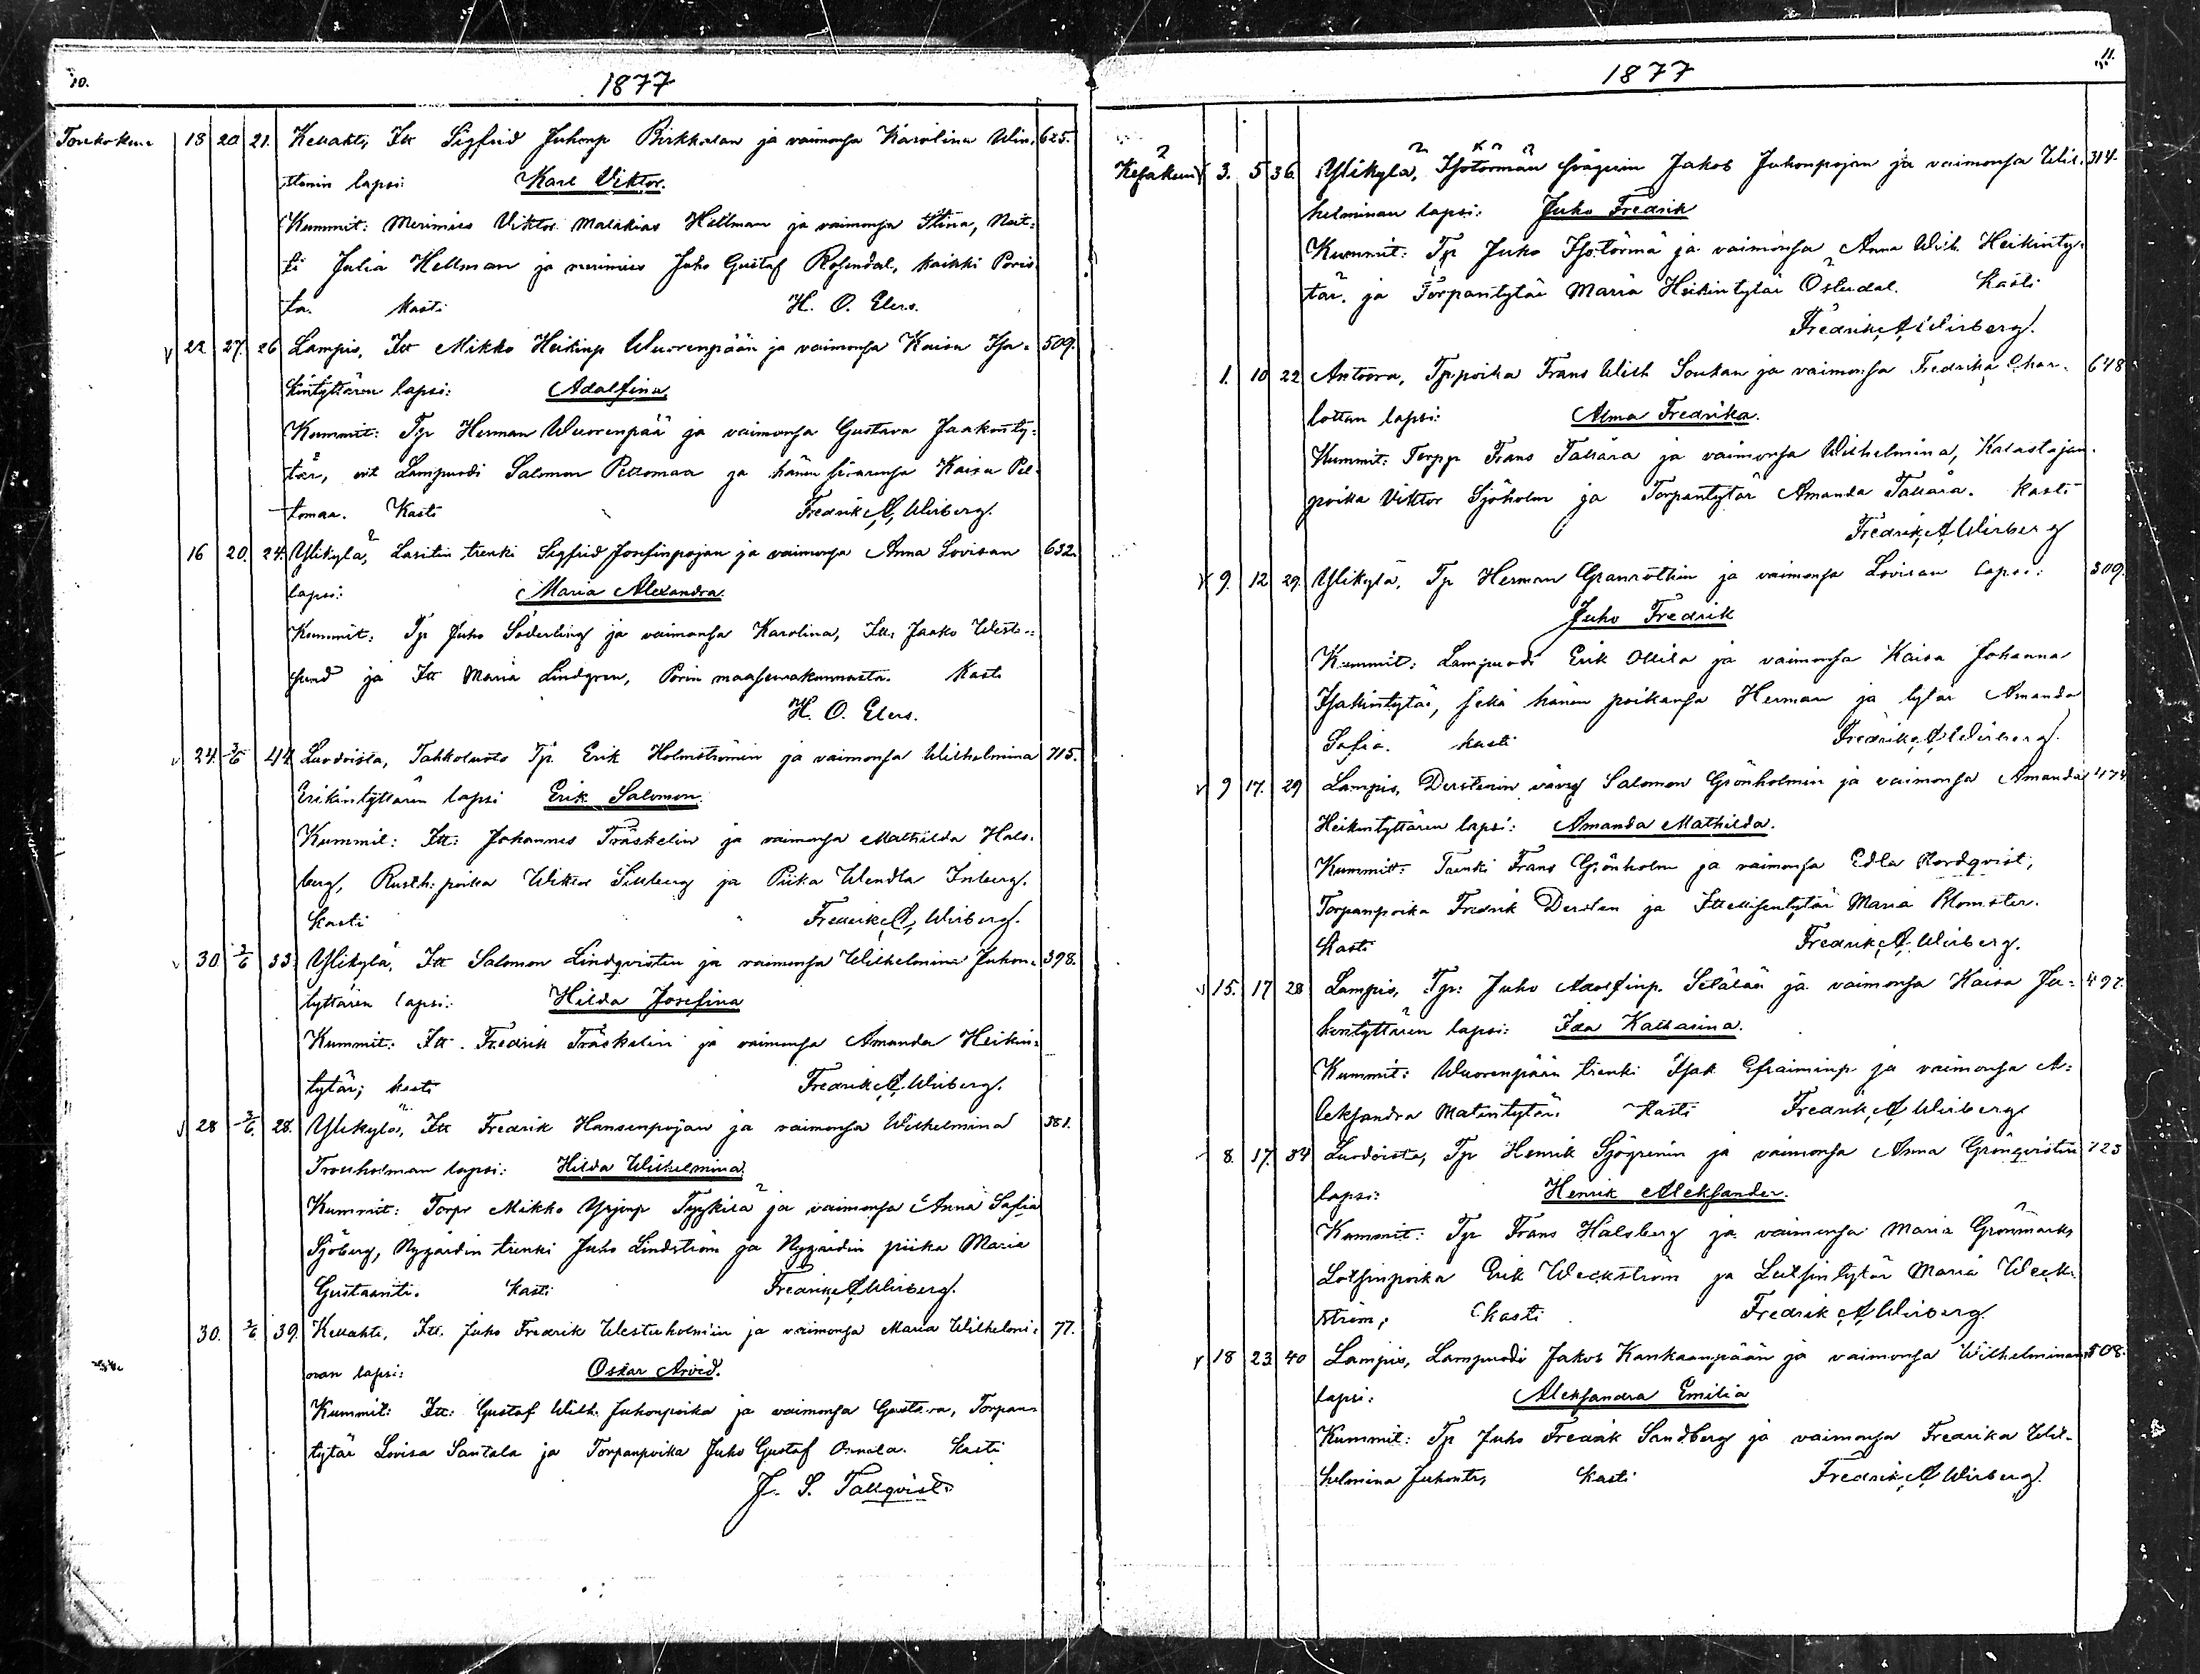 10.
1877
Toukokuu 18 20 21. Kellahti, Itt Sigfrid Juhonp Birkholan ja vaimonsa Karolina Win- 625.
lapsi: Karl Viktor.
Kummit: Merimies Viktor Malakias Hellman ja vaimonsa Stina, Neit-
ti Julia Hellman ja merimies Juho Gustaf Rosendal, kaikki Poris
ta. Kasti H. O. Elers.
22 27. 26 Lampis, Itt Mikko Heikinp Wuorenpään ja vaimonsa Kaisa Isa- 509.
kintyttären lapsi: Adolfina.
Kummit: Tp Herman Wuorenpää ja vaimonsa Gustava Jaakonty-
tär, Lampuodi Salomon Peltomaa ja hänen sisarensa Kaisa Pel-
tomaa. Kasti Fredrik A. Wirberg.
16 20. 24. Ylikylä, Lasitin trenki Sigfrid Josefinpojan ja vaimonsa Anna Lovisan 632.
lapsi: Maria Alexandra.
Kummit: Tp Juho Söderling ja vaimonsa Karolina, Itt Jaako West-
lund ja Itt Maria Lindgren, Porin maaseurakunnasta. Kasti
H. O. Elers.
24. 3/6 44 Luodoista, Tahkoluoto Tp. Erik Holmströmin ja vaimonsa Wilhelmina 715.
Erikintyttären lapsi Erik Salomon.
Kummit: Itt: Johannes Träskelin ja vaimonsa Mathilda Hals-
berg, Rusth: poika Wiktor Sillberg ja Piika Wendla Inberg.
Kasti Fredrik A. Wirberg.
30 3/6 33. Ylikylä, Itt Salomon Lindqvistin ja vaimonsa Wilhelmina Juhon- 398.
tyttären lapsi: Hilda Josefina
Kummit: Itt. Fredrik Träskelin ja vaimonsa Amanda Heikin-
tytär; kasti Fredrik A. Wirberg.
28 3/6. 28. Ylikylä, Itt Fredrik Hansenpojan ja vaimonsa Wilhelmina 381.
Trouholman lapsi: Hilda Wilhelmina.
Kummit: Torpr Mikko Yrjönp Tyyskilä ja vaimonsa Anna Sofia
Sjöberg, Nygårdin trenki Juho Lindström ja Nygårdin piika Maria
Gustaanti. Kasti Fredrik A Wirberg.
30. 3/6. 39. Kellahti, Itt. Juho Fredrik Westerholmin ja vaimonsa Maria Wilhelmi- 77.
nan lapsi: Oskar Arvid.
Kummit: Itt: Gustaf Wilh. Juhonpoika ja vaimonsa Gustava, Torpan-
tytär Lovisa Santala ja Torpanpoika Juho Gustaf Kasti
J. S. Tallqvist
11.
1877
Kesäkuu 3. 5 36. Ylikylä, Isotörmän Jakob Juhonpojan ja vaimonsa Wil- 314.
helminan lapsi: Juho Fredrik
Kummit: Tp Juho Isotörmä ja vaimonsa Anna Wilh. Heikinty-
tär. ja Torpantytär Maria Heikintytär Österdal. Kasti
Fredrik A Wirberg.
1. 10 22 Antoora, Tp:poika Frans Wilh Soukan ja vaimonsa Fredrika Char- 648
lottan lapsi: Alma Fredrika.
Kummit: Torpp Frans Tallära ja vaimonsa Wilhelmina, Kalastajan-
poika Viktor Sjöholm ja Torpantytär Amanda Tallära. Kasti
Fredrik A Wirberg
9. 12 29. Ylikylä, Tp Herman Granrothin ja vaimonsa Lovisan lapsi: 309.
Juho Fredrik
Kummit: Lampuodi Erik Ollila ja vaimonsa Kaisa Johanna
Isakintytär, sekä hänen poikansa Herman ja tytär Amanda
Sofia. kasti Fredrik A Wirberg.
9 17. 29 Lampis, Derstenin vävy Salomon Grönholmin ja vaimonsa Amanda 474
Heikintyttären lapsi: Amanda Mathilda.
Kummit: Trenki Frans Grönholm ja vaimonsa Edla Nordqvist,
Torpanpoika Fredrik Dersten ja Ittellisentytär Maria Blomster.
Kasti Fredrik A. Wirberg.
15. 17 28 Lampis, Tp: Juho Adolfinp. Selälän ja vaimonsa Kaisa Ja- 497.
kontyttären lapsi: Ida Katharina.
Kummit: Wuorenpään trenki Isak Efraiminp ja vaimonsa A-
leksandra Matintytär. Kasti Fredrik A Wirberg
8. 17. 34 Luodoista, Tp Henrik Sjögrenin ja vaimonsa Anna Grönqvistin 723
lapsi: Henrik Aleksander.
Kummit: Tp Frans Halsberg ja vaimonsa Maria Grönmark,
Lotsinpoika Erik Weckström ja Lotsintytär Maria Weck-
ström, Kasti Fredrik A Wirberg.
18 23 40 Lampis, Lampuodi Jakob Kankaanpään ja vaimonsa Wilhelminan 508.
lapsi: Aleksandra Emilia
Kummit: Tp Juho Fredrik Sandberg ja vaimonsa Fredrika Wil-
helmina Juhontr, Kasti Fredrik A Wirberg.